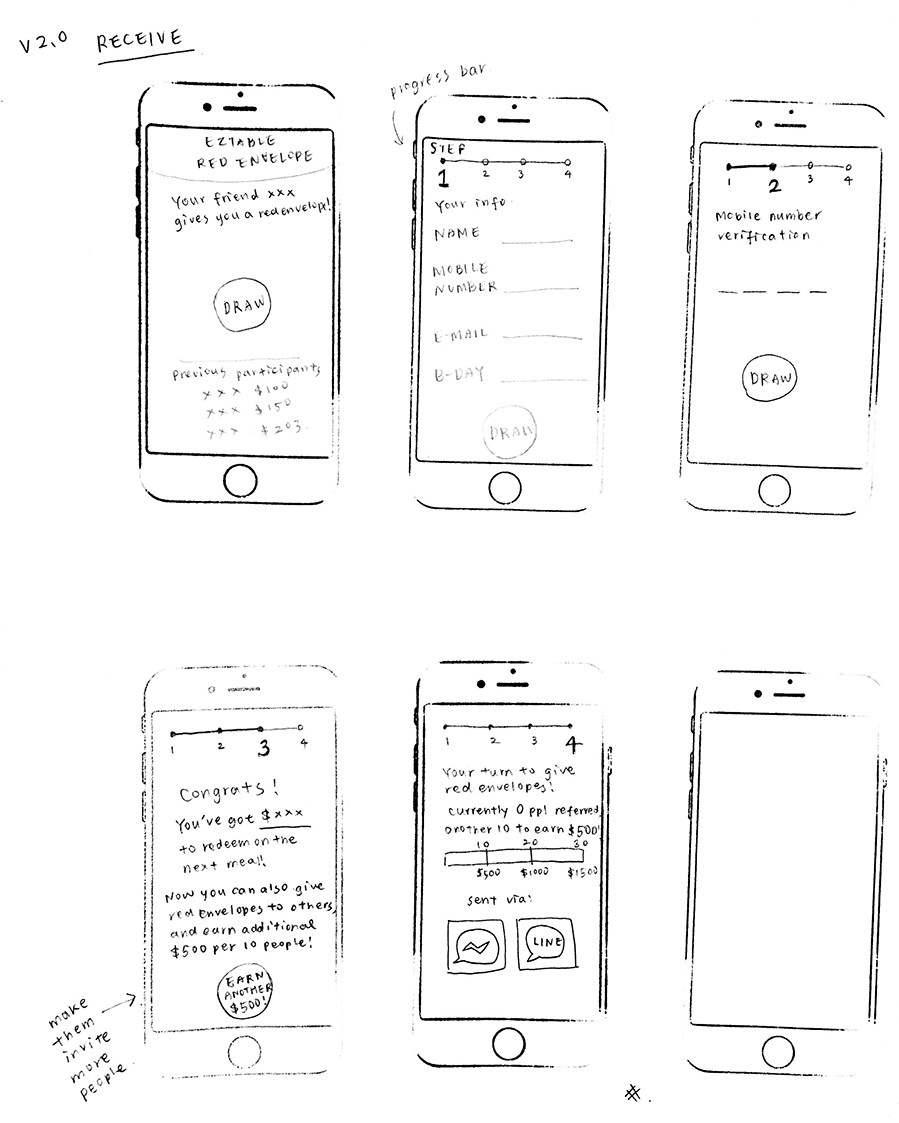 V 2.0 RECEIVE
EZTABLE
RED ENVELOPE
Your friend xxx
gives you a red envelope!
DRAW
Previous participants
xxx $100
xxx $150
xxx $203
progress bar
STEP
1 2 3 4
Your info
NAME
MOBILE
NUMBER
E-MAIL
B-DAY
DRAW
1 2 3 4
Mobile number
verification
DRAW
1 2 3 4
Congrats!
You've got $xxx
to redeem on the
next meal!
Now you can also give
red envelopes to others,
and earn additional
$500 per 10 people!
EARN
ANOTHER
$500!
make
them
invite
more
people.
1 2 3 4
Your turn to give
red envelopes!
currently 0 ppl referred,
another 10 to earn $500!
10 20 30
$500 $1000 $1500
sent via:
LINE
#.